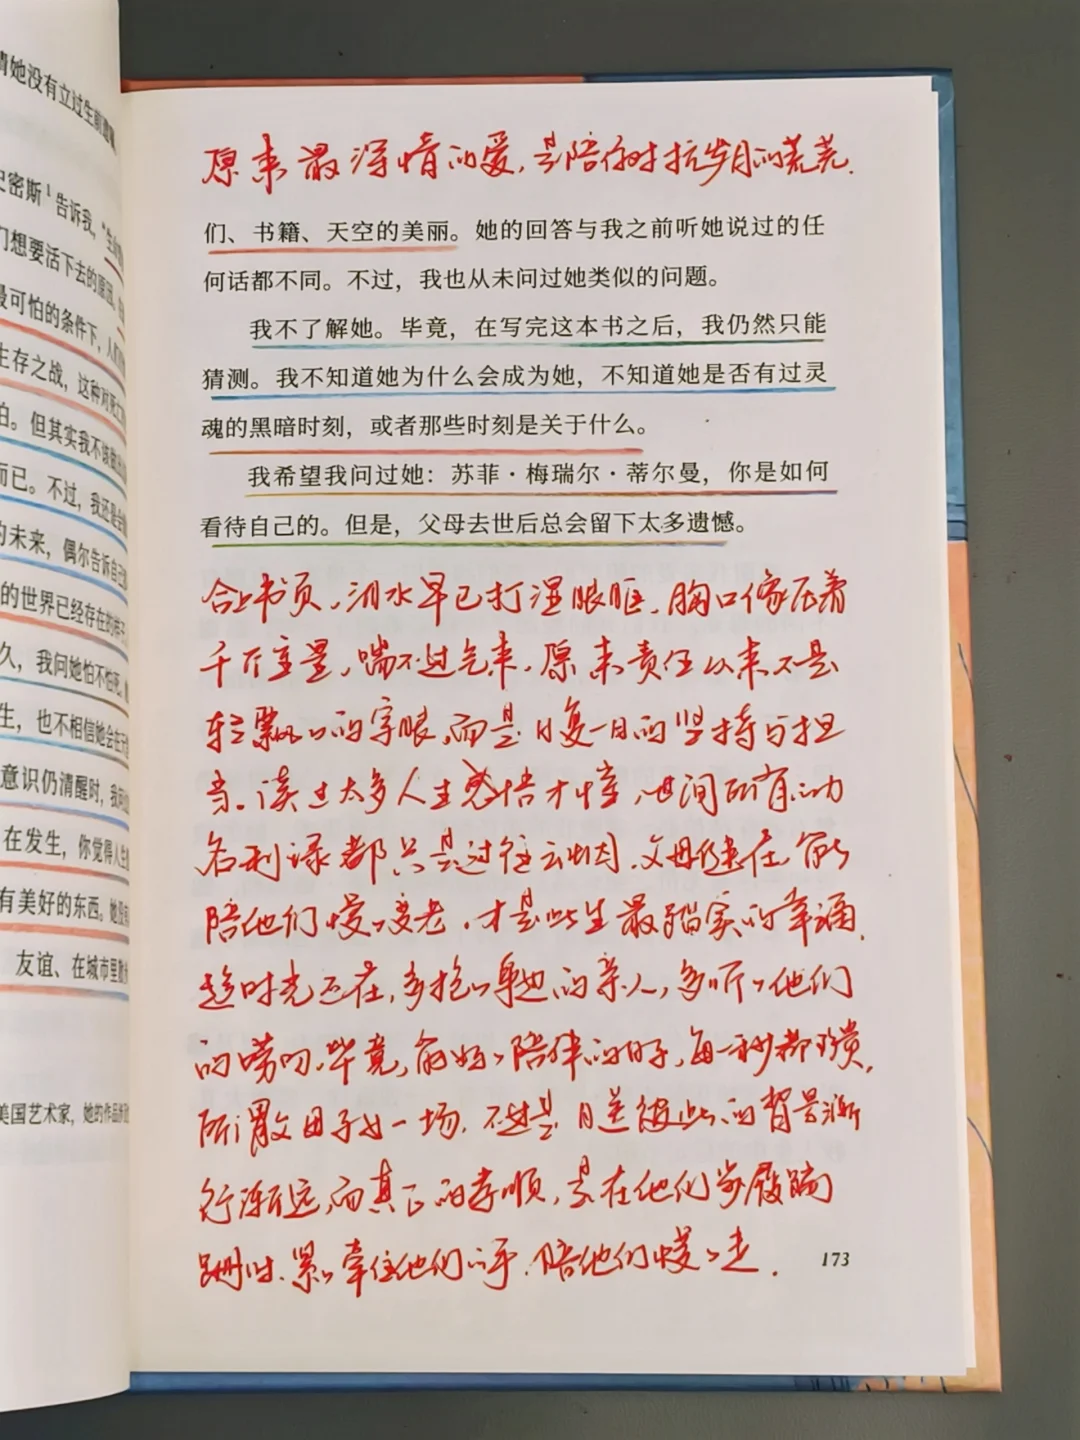 情她没有立过生前遗嘱
史密斯¹告诉我，“生
们想要活下去的原因
最可怕的条件下，人
生存之战，这种对死亡
怕。但其实我不该
而已。不过，我还是会
的未来，偶尔告诉自己
的世界已经存在的样子
久，我问她怕不怕死
生，也不相信她会在
意识仍清醒时，我问
在发生，你觉得人生
有美好的东西。她
友谊、在城市里散
美国艺术家，她的作品
原来最深情的爱，是陪你对抗岁月的荒芜.
们、书籍、天空的美丽。她的回答与我之前听她说过的任
何话都不同。不过，我也从未问过她类似的问题。
我不了解她。毕竟，在写完这本书之后，我仍然只能
猜测。我不知道她为什么会成为她，不知道她是否有过灵
魂的黑暗时刻，或者那些时刻是关于什么。
我希望我问过她：苏菲·梅瑞尔·蒂尔曼，你是如何
看待自己的。但是，父母去世后总会留下太多遗憾。
合上书页，泪水早已打湿眼眶，胸口像压着
千斤重量，喘不过气来，原来责任从来不是
轻飘飘的字眼，而是日复一日的坚持与担
当。读过太多人生感悟才懂，世间所有的功
名利禄都只是过往云烟。父母健在，能
陪他们慢慢变老，才是此生最踏实的幸福.
趁时光还在，多抱抱身边的亲人，多听听他们
的唠叨，毕竟，能好好陪伴的日子，每一秒都珍贵，
所谓父母子女一场，不过是目送彼此的背影渐
行渐远，而真正的孝顺，是在他们步履蹒
跚时，紧紧牵住他们的手，陪他们慢慢走.
173